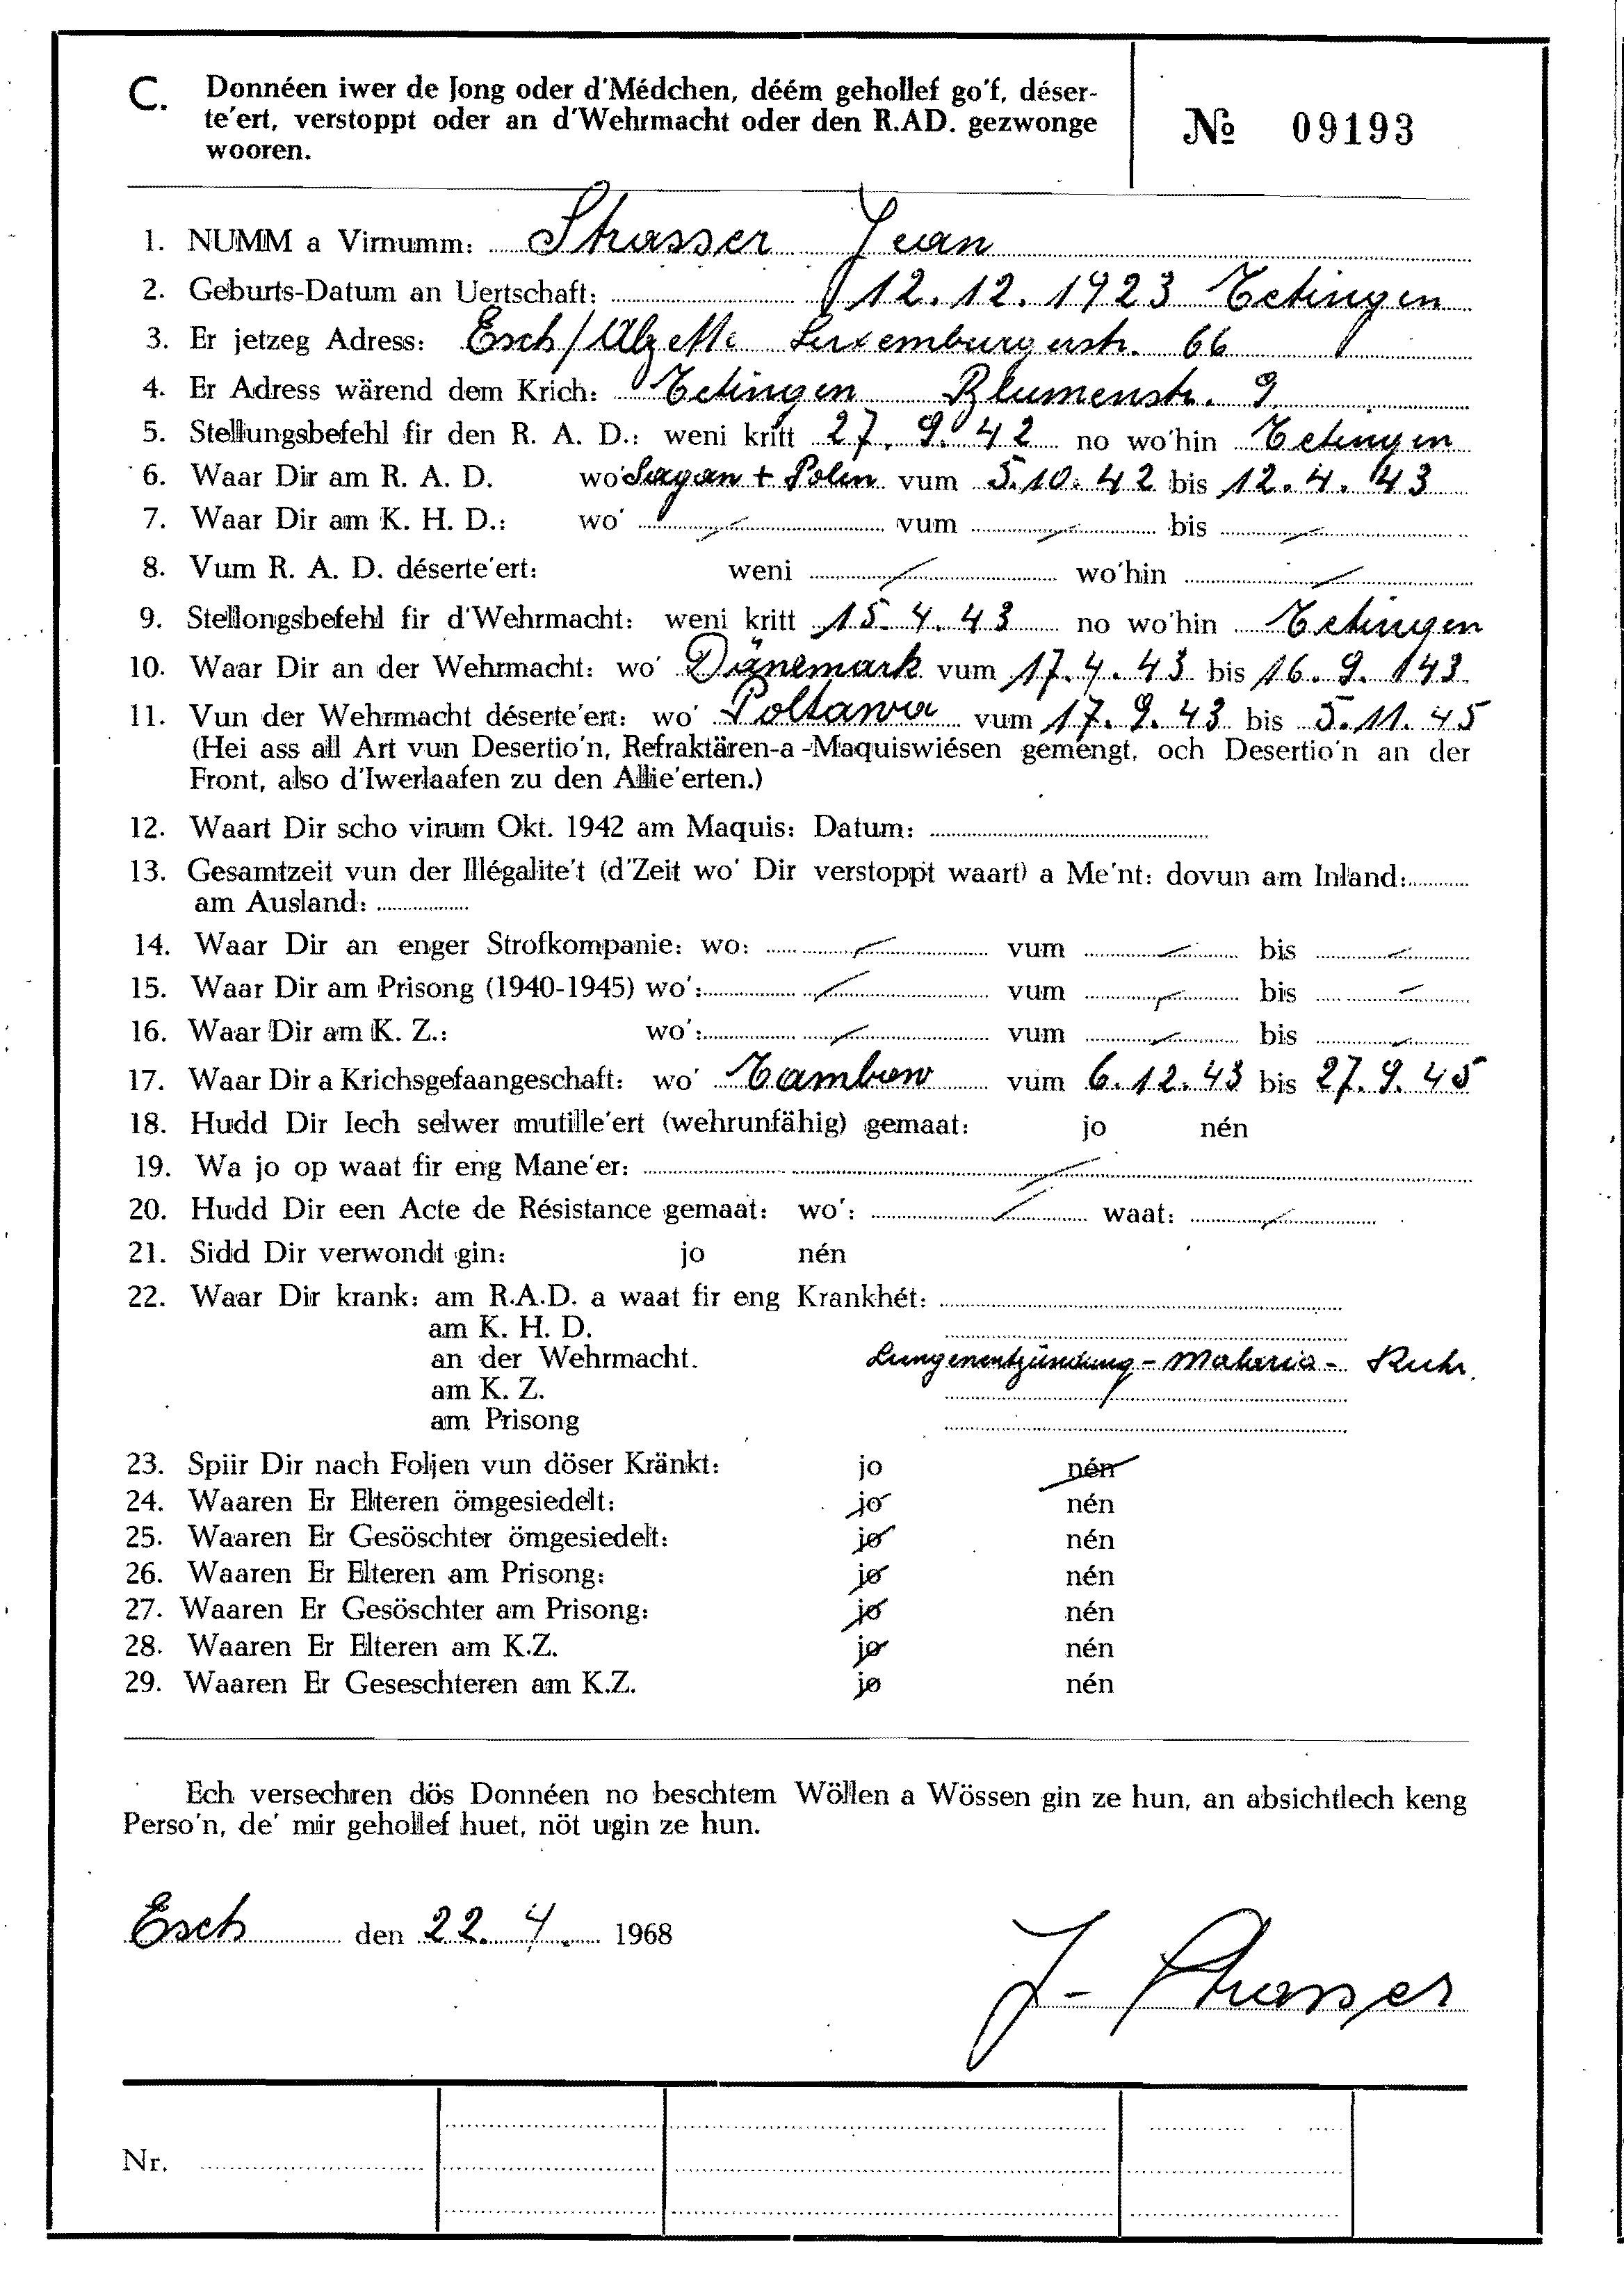 C. Donnéen iwer de Jong oder d'Médchen, déém gehollef go'f, déser-
te'ert, verstoppt oder an d'Wehrmacht oder den R.AD. gezwonge
wooren.
№ 09193
1. NUMM a Virnumm: Strasser Jean
2. Geburts-Datum an Uertschaft: 12.12.1923 Tetingen
3. Er jetzeg Adress: Esch/Alzette Luxemburgerstr. 66
4. Er Adress wärend dem Krich: Tetingen Blumenstr. 9
5. Stellungsbefehl fir den R. A. D.: weni kritt 27. 9. 42 no wo'hin Tetingen
6. Waar Dir am R. A. D. wo' Sagan + Polen vum 5.10.42 bis 12.4.43
7. Waar Dir am K. H. D.: wo' / vum / bis /
8. Vum R. A. D. déserte'ert: weni / wo'hin /
9. Stellongsbefehl fir d'Wehrmacht: weni kritt 15.4.43 no wo'hin Tetingen
10. Waar Dir an der Wehrmacht: wo' Dänemark vum 17.4.43 bis 16.9.143
11. Vun der Wehrmacht déserte'ert: wo' Poltawa vum 17.9.43 bis 5.11.45
(Hei ass all Art vun Desertio'n, Refraktären-a-Maquiswiésen gemengt, och Desertio'n an der
Front, also d'Iwerlaafen zu den Allie'erten.)
12. Waart Dir scho virum Okt. 1942 am Maquis: Datum:
13. Gesamtzeit vun der Illégalite't (d'Zeit wo' Dir verstoppt waart) a Me'nt: dovun am Inland:
am Ausland:
14. Waar Dir an enger Strofkompanie: wo: / vum / bis /
15. Waar Dir am Prisong (1940-1945) wo': / vum / bis /
16. Waar Dir am K. Z.: wo': / vum / bis /
17. Waar Dir a Krichsgefaangeschaft: wo' Tambow vum 6.12.43 bis 27.9.45
18. Hudd Dir Iech selwer mutille'ert (wehrunfähig) gemaat: jo nén
19. Wa jo op waat fir eng Mane'er: /
20. Hudd Dir een Acte de Résistance gemaat: wo': / waat: /
21. Sidd Dir verwondt gin: jo nén
22. Waar Dir krank: am R.A.D. a waat fir eng Krankhét:
am K. H. D.
an der Wehrmacht. Lungenentzündung - Malaria - Ruhr.
am K. Z.
am Prisong
23. Spiir Dir nach Foljen vun döser Kränkt: jo nén
24. Waaren Er Elteren ömgesiedelt: jo nén
25. Waaren Er Gesöschter ömgesiedelt: jo nén
26. Waaren Er Elteren am Prisong: jo nén
27. Waaren Er Gesöschter am Prisong: jo nén
28. Waaren Er Elteren am K.Z. jo nén
29. Waaren Er Geseschteren am K.Z. jo nén
Ech versechren dös Donnéen no beschtem Wöllen a Wössen gin ze hun, an absichtlech keng
Perso'n, de' mir gehollef huet, nöt ugin ze hun.
Esch den 22. 4. 1968
J- Strasser
Nr.